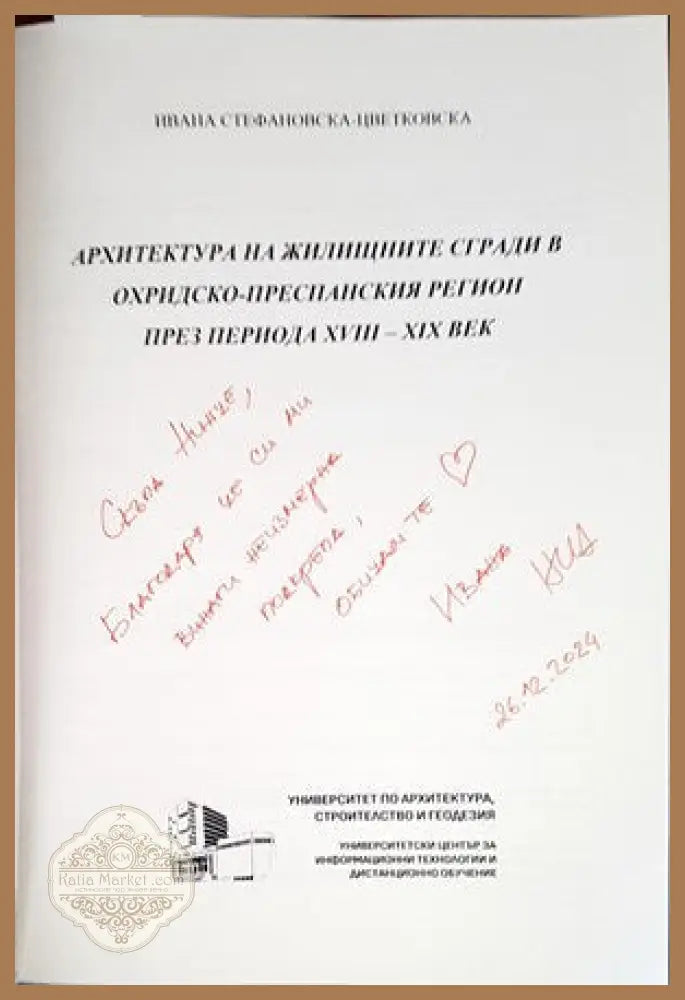 ИВАНА СТЕФАНОВСКА-ЦВЕТКОВСКА
АРХИТЕКТУРА НА ЖИЛИЩНИТЕ СГРАДИ В
ОХРИДСКО-ПРЕСПАНСКИЯ РЕГИОН
ПРЕЗ ПЕРИОДА XVIII – XIX ВЕК
Скъпа Нинче,
Благодаря че си ми
винаги неизмерна
подкрепа,
обичам те ♡
Ивана
26.12.2024
УНИВЕРСИТЕТ ПО АРХИТЕКТУРА,
СТРОИТЕЛСТВО И ГЕОДЕЗИЯ
УНИВЕРСИТЕТСКИ ЦЕНТЪР ЗА
ИНФОРМАЦИОННИ ТЕХНОЛОГИИ И
ДИСТАНЦИОННО ОБУЧЕНИЕ
KM
Katia Market .com